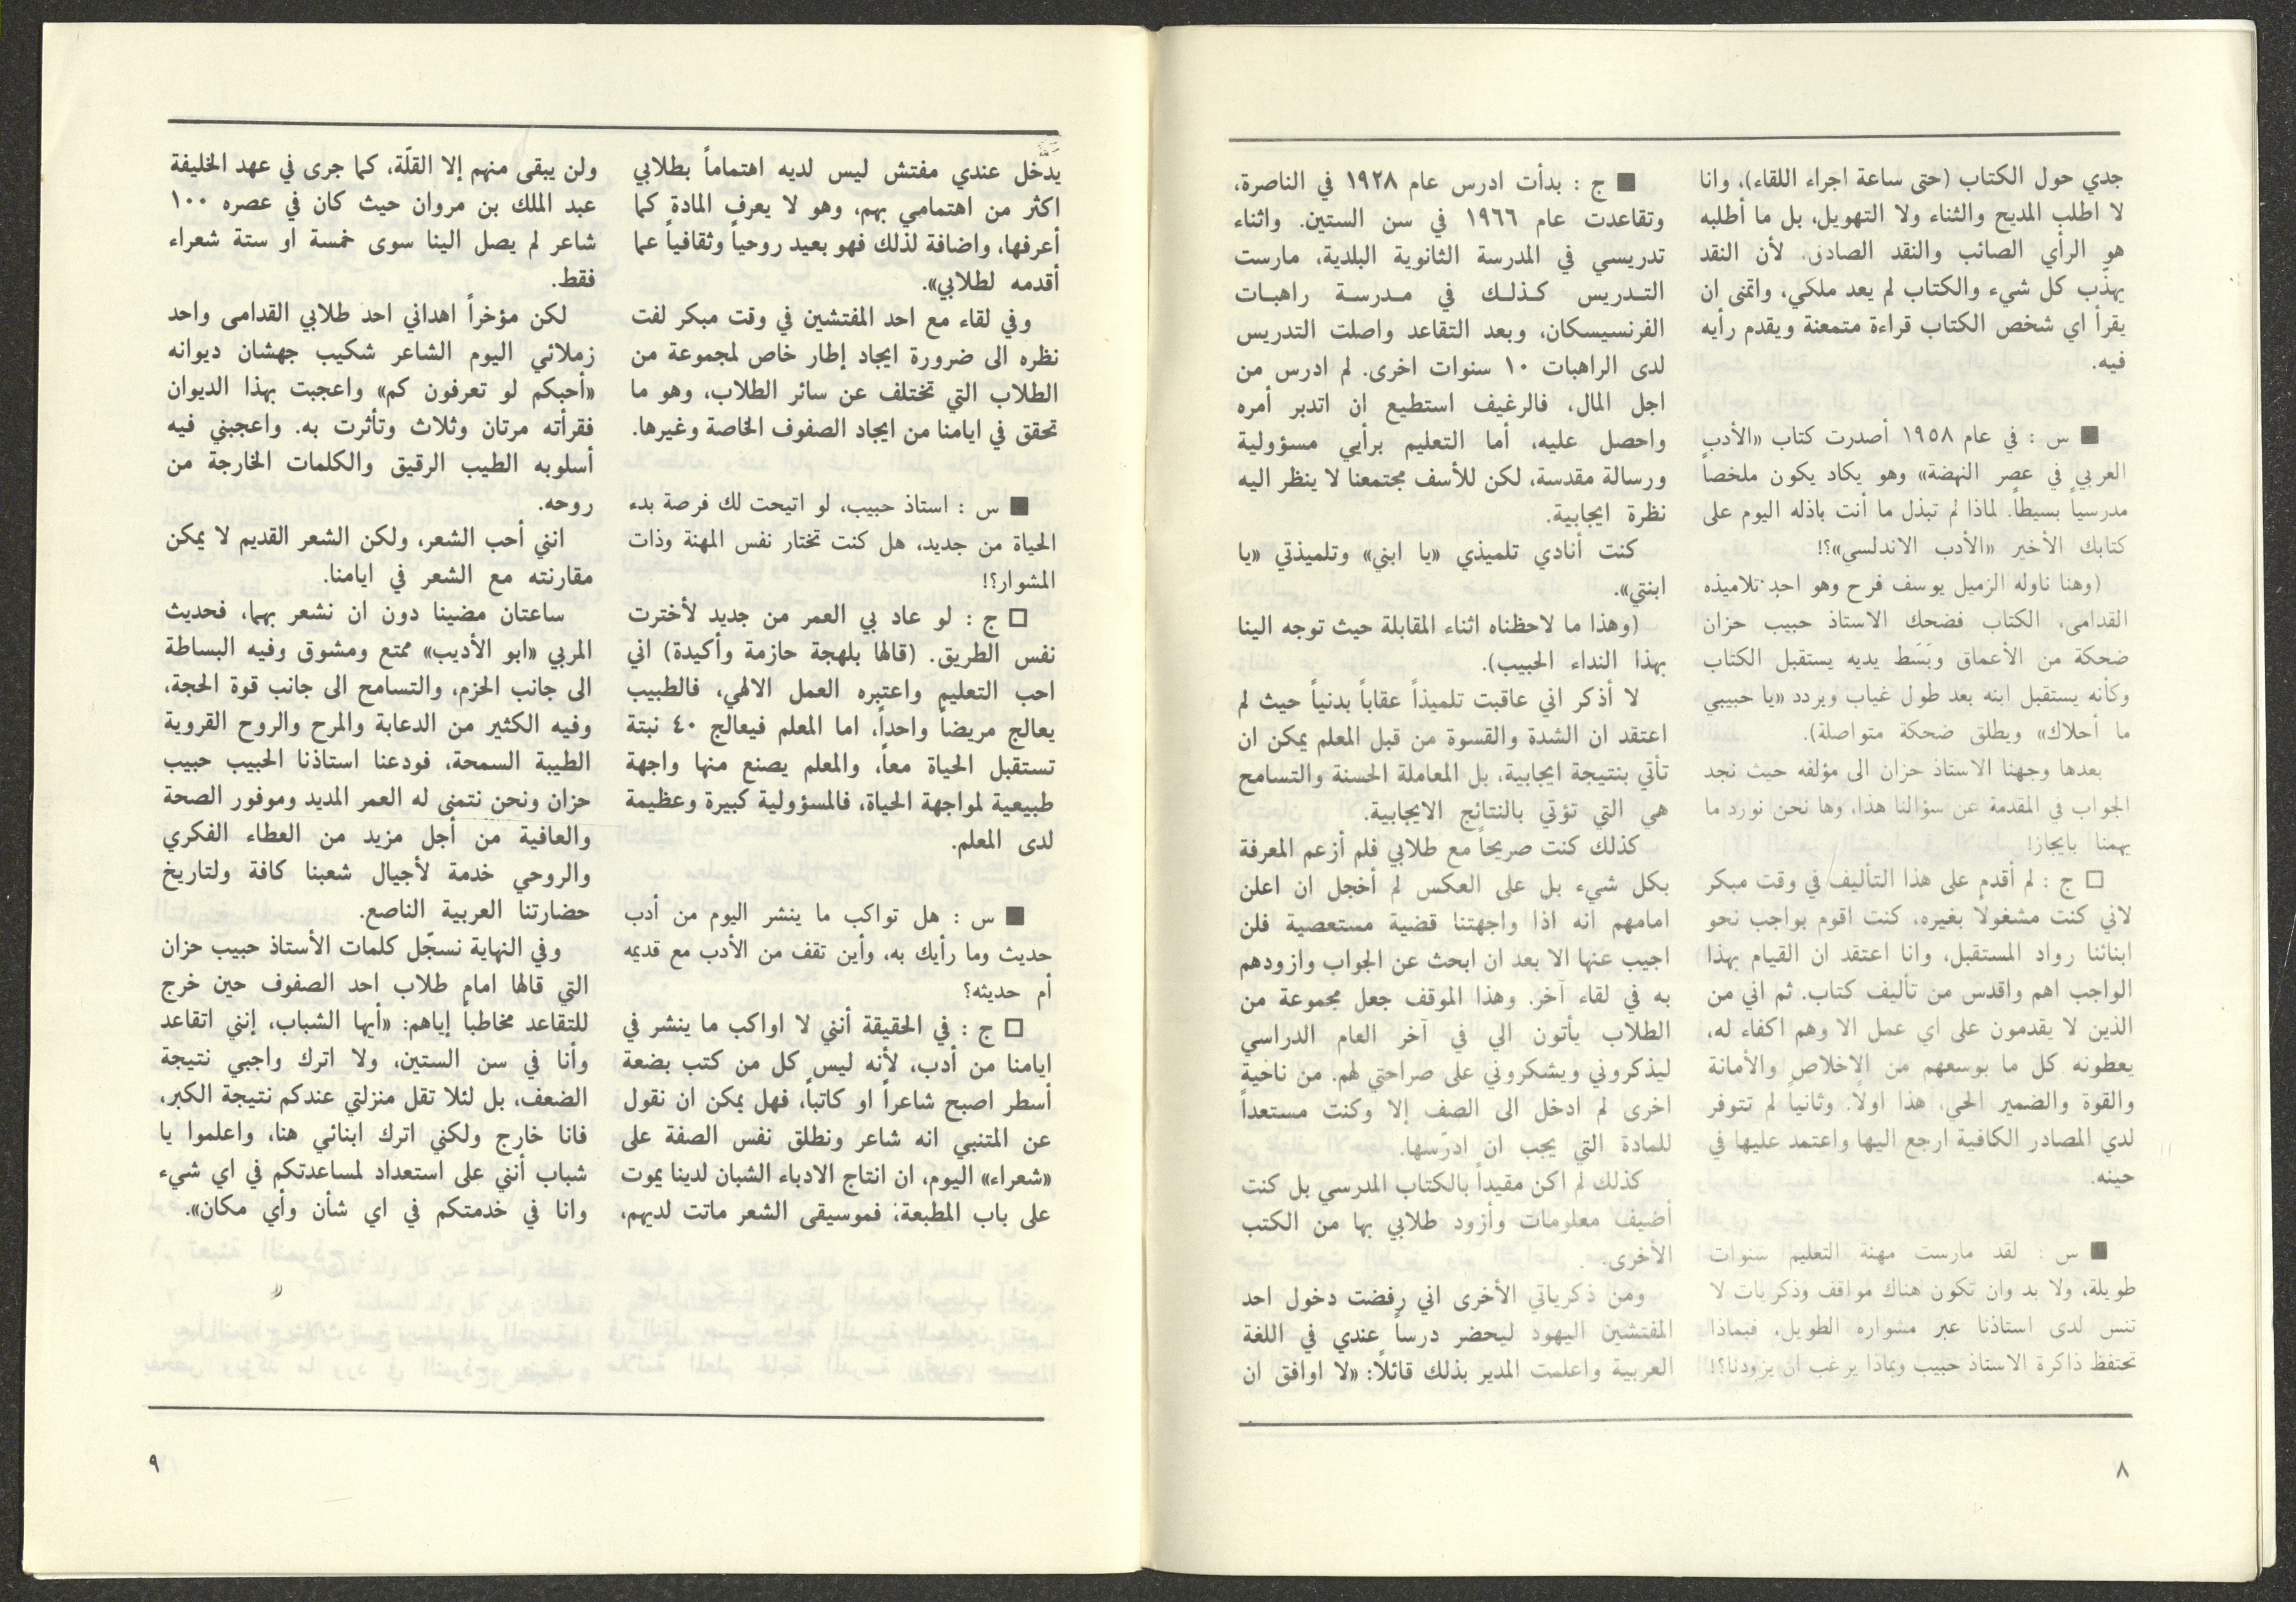 جدي حول الكتاب (حتى ساعة اجراء اللقاء)، وانا
لا اطلب المديح والثناء ولا التهويل، بل ما أطلبه
هو الرأي الصائب والنقد الصادق. لأن النقد
يهذّب كل شيء والكتاب لم يعد ملكي، واتمنى ان
يقرأ اي شخص الكتاب قراءة متمعنة ويقدم رأيه
فيه.
■ س : في عام ١٩٥٨ أصدرت كتاب «الأدب
العربي في عصر النهضة» وهو يكاد يكون ملخصاً
مدرسياً بسيطاً. لماذا لم تبذل ما أنت باذله اليوم على
كتابك الأخير «الأدب الاندلسي»؟!
(وهنا ناوله الزميل يوسف فرح وهو احد تلاميذه
القدامى، الكتاب فضحك الاستاذ حبيب حزان
ضحكة من الأعماق وبَسَط يديه يستقبل الكتاب
وكأنه يستقبل ابنه بعد طول غياب ويردد «يا حبيبي
ما أحلاك» ويطلق ضحكة متواصلة).
بعدها وجهنا الاستاذ حزان الى مؤلفه حيث نجد
الجواب في المقدمة عن سؤالنا هذا، وها نحن نورد ما
يهمنا بايجاز!
□ ج : لم أقدم على هذا التأليف في وقت مبكر
لاني كنت مشغولاً بغيره، كنت اقوم بواجب نحو
ابنائنا رواد المستقبل، وانا اعتقد ان القيام بهذا
الواجب اهم واقدس من تأليف كتاب. ثم اني من
الذين لا يقدمون على اي عمل الا وهم اكفاء له،
يعطونه كل ما بوسعهم من الاخلاص والأمانة
والقوة والضمير الحي، هذا اولاً. وثانياً لم تتوفر
لدي المصادر الكافية ارجع اليها واعتمد عليها في
حينه.
■ س : لقد مارست مهنة التعليم سنوات
طويلة، ولا بد وان تكون هناك مواقف وذكريات لا
تنس لدى استاذنا عبر مشواره الطويل، فبماذا
تحتفظ ذاكرة الاستاذ حبيب وبماذا يرغب ان يزودنا؟!
■ ج : بدأت ادرس عام ١٩٢٨ في الناصرة،
وتقاعدت عام ١٩٦٦ في سن الستين. واثناء
تدريسي في المدرسة الثانوية البلدية، مارست
التدريس كذلك في مدرسة راهبات
الفرنسيسكان، وبعد التقاعد واصلت التدريس
لدى الراهبات ١٠ سنوات اخرى. لم ادرس من
اجل المال، فالرغيف استطيع ان اتدبر أمره
واحصل عليه، أما التعليم برأيي مسؤولية
ورسالة مقدسة، لكن للأسف مجتمعنا لا ينظر اليه
نظرة ايجابية.
كنت أنادي تلميذي «يا ابني» وتلميذتي «يا
ابنتي».
(وهذا ما لاحظناه اثناء المقابلة حيث توجه الينا
بهذا النداء الحبيب).
لا أذكر اني عاقبت تلميذاً عقاباً بدنياً حيث لم
اعتقد ان الشدة والقسوة من قبل المعلم يمكن ان
تأتي بنتيجة ايجابية، بل المعاملة الحسنة والتسامح
هي التي تؤتي بالنتائج الايجابية.
كذلك كنت صريحاً مع طلابي فلم أزعم المعرفة
بكل شيء بل على العكس لم أخجل ان اعلن
امامهم انه اذا واجهتنا قضية مستعصية فلن
اجيب عنها الا بعد ان ابحث عن الجواب وازودهم
به في لقاء آخر. وهذا الموقف جعل مجموعة من
الطلاب يأتون الي في آخر العام الدراسي
ليذكروني ويشكروني على صراحتي لهم. من ناحية
اخرى لم ادخل الى الصف إلا وكنت مستعداً
للمادة التي يجب ان ادرّسها.
كذلك لم اكن مقيداً بالكتاب المدرسي بل كنت
أضيف معلومات وأزود طلابي بها من الكتب
الأخرى.
ومن ذكرياتي الأخرى اني رفضت دخول احد
المفتشين اليهود ليحضر درساً عندي في اللغة
العربية واعلمت المدير بذلك قائلاً: «لا اوافق ان
٨
يدخل عندي مفتش ليس لديه اهتماماً بطلابي
اكثر من اهتمامي بهم، وهو لا يعرف المادة كما
أعرفها، واضافة لذلك فهو بعيد روحياً وثقافياً عما
أقدمه لطلابي».
وفي لقاء مع احد المفتشين في وقت مبكر لفت
نظره الى ضرورة ايجاد إطار خاص لمجموعة من
الطلاب التي تختلف عن سائر الطلاب، وهو ما
تحقق في ايامنا من ايجاد الصفوف الخاصة وغيرها.
■ س : استاذ حبيب، لو اتيحت لك فرصة بدء
الحياة من جديد، هل كنت تختار نفس المهنة وذات
المشوار؟!
□ ج : لو عاد بي العمر من جديد لأخترت
نفس الطريق. (قالها بلهجة حازمة وأكيدة) اني
احب التعليم واعتبره العمل الالهي، فالطبيب
يعالج مريضاً واحداً، اما المعلم فيعالج ٤٠ نبتة
تستقبل الحياة معاً، والمعلم يصنع منها واجهة
طبيعية لمواجهة الحياة، فالمسؤولية كبيرة وعظيمة
لدى المعلم.
■ س : هل تواكب ما ينشر اليوم من أدب
حديث وما رأيك به، وأين تقف من الأدب مع قديمه
أم حديثه؟
□ ج : في الحقيقة أنني لا اواكب ما ينشر في
ايامنا من أدب، لأنه ليس كل من كتب بضعة
أسطر اصبح شاعراً او كاتباً، فهل يمكن ان نقول
عن المتنبي انه شاعر ونطلق نفس الصفة على
«شعراء» اليوم، ان انتاج الادباء الشبان لدينا يموت
على باب المطبعة؛ فموسيقى الشعر ماتت لديهم،
ولن يبقى منهم إلا القلّة، كما جرى في عهد الخليفة
عبد الملك بن مروان حيث كان في عصره ١٠٠
شاعر لم يصل الينا سوى خمسة او ستة شعراء
فقط.
لكن مؤخراً اهداني احد طلابي القدامى واحد
زملائي اليوم الشاعر شكيب جهشان ديوانه
«أحبكم لو تعرفون كم» واعجبت بهذا الديوان
فقرأته مرتان وثلاث وتأثرت به. واعجبني فيه
أسلوبه الطيب الرقيق والكلمات الخارجة من
روحه.
انني أحب الشعر، ولكن الشعر القديم لا يمكن
مقارنته مع الشعر في ايامنا.
ساعتان مضينا دون ان نشعر بهما، فحديث
المربي «ابو الأديب» ممتع ومشوق وفيه البساطة
الى جانب الحزم، والتسامح الى جانب قوة الحجة،
وفيه الكثير من الدعابة والمرح والروح القروية
الطيبة السمحة، فودعنا استاذنا الحبيب حبيب
حزان ونحن نتمنى له العمر المديد وموفور الصحة
والعافية من أجل مزيد من العطاء الفكري
والروحي خدمة لأجيال شعبنا كافة ولتاريخ
حضارتنا العربية الناصع.
وفي النهاية نسجّل كلمات الأستاذ حبيب حزان
التي قالها امام طلاب احد الصفوف حين خرج
للتقاعد مخاطباً إياهم: «أيها الشباب، إنني اتقاعد
وأنا في سن الستين، ولا اترك واجبي نتيجة
الضعف، بل لئلا تقل منزلتي عندكم نتيجة الكبر،
فانا خارج ولكني اترك ابنائي هنا، واعلموا يا
شباب أنني على استعداد لمساعدتكم في اي شيء
وانا في خدمتكم في اي شأن وأي مكان».
٩